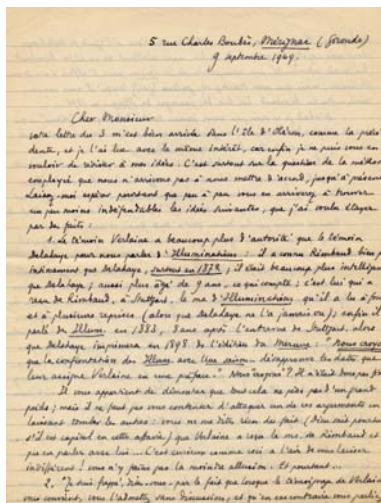 5 rue Charles Boubès, Mérignac (Gironde)
9 septembre 1949.
Cher Monsieur
votre lettre du 3 m'est bien arrivée dans l'île d'Oléron, comme la précé-
dente, et je l'ai lue avec le même intérêt, car enfin je ne puis vous en
vouloir de résister à mes idées. C'est surtout sur la question de la méthode
employée que nous n'arrivons pas à nous mettre d'accord, jusqu'à présent.
Laissez-moi espérer pourtant que peu à peu vous en arriverez à trouver
un peu moins indéfendables les idées suivantes, que j'ai voulu étayer
par des faits :
1. Le témoin Verlaine a beaucoup plus d'autorité que le témoin
Delahaye pour nous parler d'Illuminations : il a connu Rimbaud bien plus
intimement que Delahaye, surtout en 1872 ; il était beaucoup plus intelligent
que Delahaye ; aussi plus âgé de 9 ans, ce qui compte ; c'est lui qui a
reçu de Rimbaud, à Stuttgart, le ms d'Illuminations, qu'il a lu à fond
et à plusieurs reprises (alors que Delahaye ne l'a jamais vu) ; enfin il
parle des Illum. en 1883, 8 ans après l'entrevue de Stuttgart, alors
que Delahaye imprimera en 1898 de l'édition du Mercure : "Nous croyons
que la confrontation des Illum. avec Une saison désapprouve les dates que
leur assigne Verlaine en une préface." Nous croyons"? Il n'était donc pas
Il vous appartient de démontrer que tout cela ne pèse pas d'un grand
poids ; mais il ne faut pas vous contenter d'attaquer un de ces arguments en
laissant tomber les autres : vous ne me dites rien du fait
s'il est capital en cette affaire) que Verlaine a reçu le ms. de Rimbaud et
pu en parler avec lui... C'est curieux comme cela a l'air de vous laisser
indifférent ! vous n'y faites pas la moindre allusion. Et pourtant...
2. "Je suis frappé, dites-vous, par le fait que lorsque le témoignage de Verlaine
vous convient, vous l'admettez sans discussion, et qu'au contraire vous